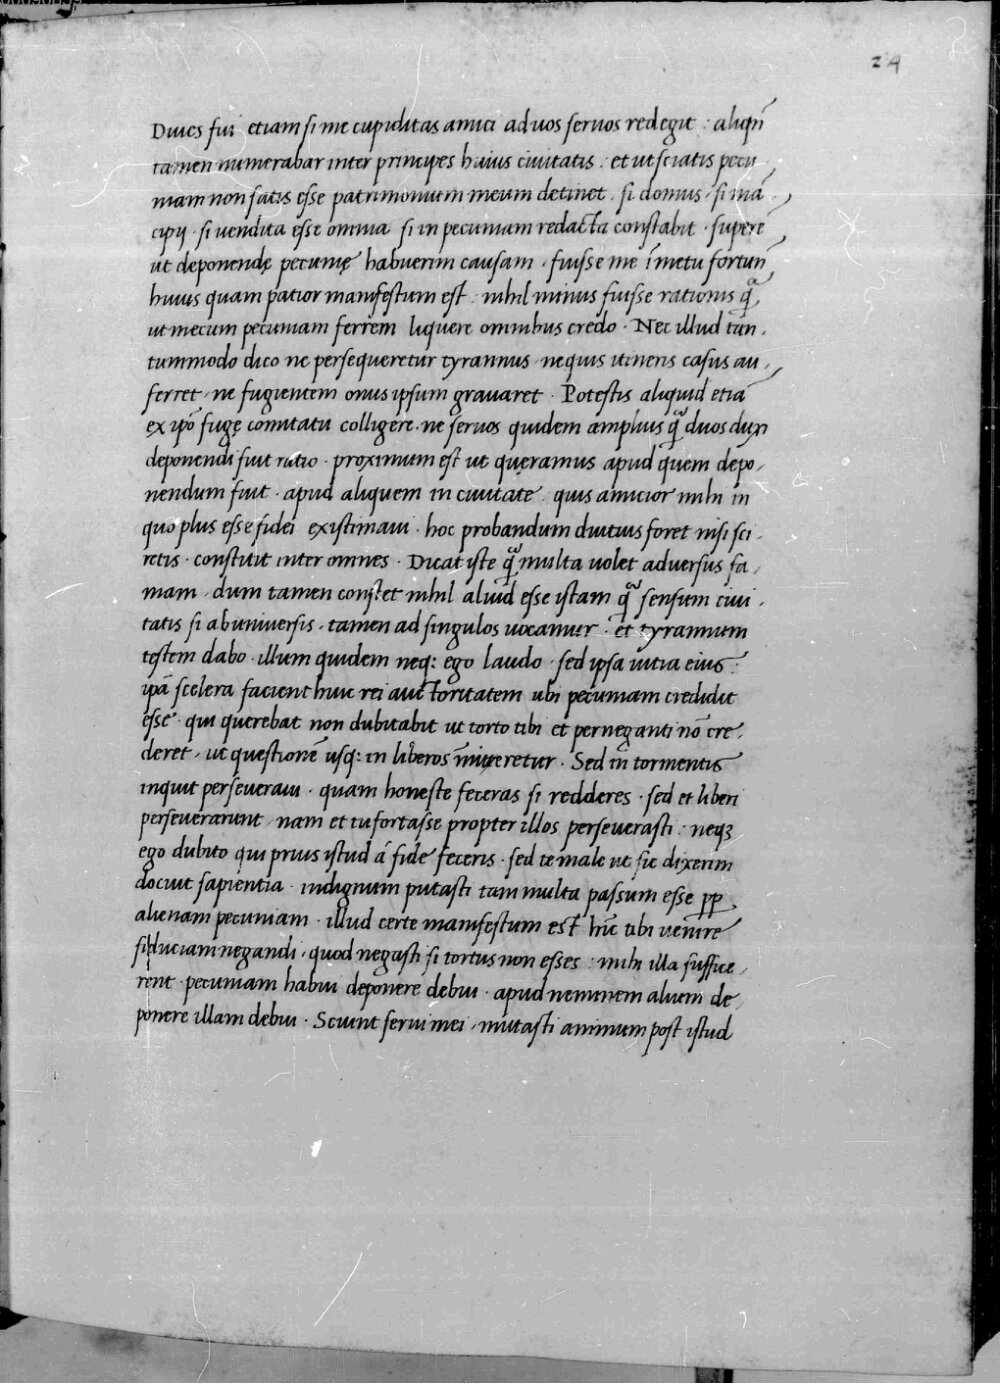 24
Diues fui etiam si me cupiditas amici ad uos seruos redegit : aliqñ
tamen numerabar inter principes huius ciuitatis . et ut sciatis pecu
niam non satis esse patrimonium meum detinet . si domus / si mã /
cipij . si uendita esse omnia si in pecuniam redacta constabit . superẽ
ut deponendę pecunię habuerim causam . fuisse me ĩ metu fortuñ
huius quam patior manifestum est . nihil minus fuisse rationis q̃
ut mecum pecuniam ferrem liquere omnibus credo . Nec illud tan /
tummodo dico ne persequeretur tyrannus . nequis itineris casus au /
ferret . ne fugientem onus ipsum grauaret . Potestis aliquid etiã
ex ip̃o fugę comitatu colligere . ne seruos quidem amplius q̃ duos duxi
deponendi fuit ratio . proximum est ut quęramus apud quem depo /
nendum fuit . apud aliquem in ciuitate . quis amicior mihi in
quo plus esse fidei existimaui . hoc probandum diutius foret nisi sci /
retis . constitit inter omnes . Dicat iste q̃ multa uolet aduersus fa /
mam . dum tamen constet nihil aliud esse istam q̃ sensum ciui /
tatis si ab uniuersis . tamen ad singulos uocamur . et tyrannum
testem dabo . illum quidem neq: ego laudo . sed ipsa uitia eius .
ip̃a scelera facient huic rei auctoritatem ubi pecuniam credidit
esse . qui querebat non dubitabit ut torto tibi et perneganti nõ cre /
deret . ut questionẽ usq: in liberos mitteretur . Sed in tormentis
inquit perseueraui . quam honeste feceras si redderes . sed et liberi
perseuerarunt nam et tu fortasse propter illos perseuerasti . neq3
ego dubito qui prius istud á fide feceris . sed te male ut sic dixerim
docuit sapientia . indignum putasti tam multa passum esse pp̃
alienam pecuniam . illud certe manifestum est hĩc tibi uenire
fiduciam negandi . quod negasti si tortus non esses : mihi illa suffice /
rent . pecuniam habui deponere debui . apud neminem alium de /
ponere illam debui . Sciunt serui mei . mutasti animum post istud